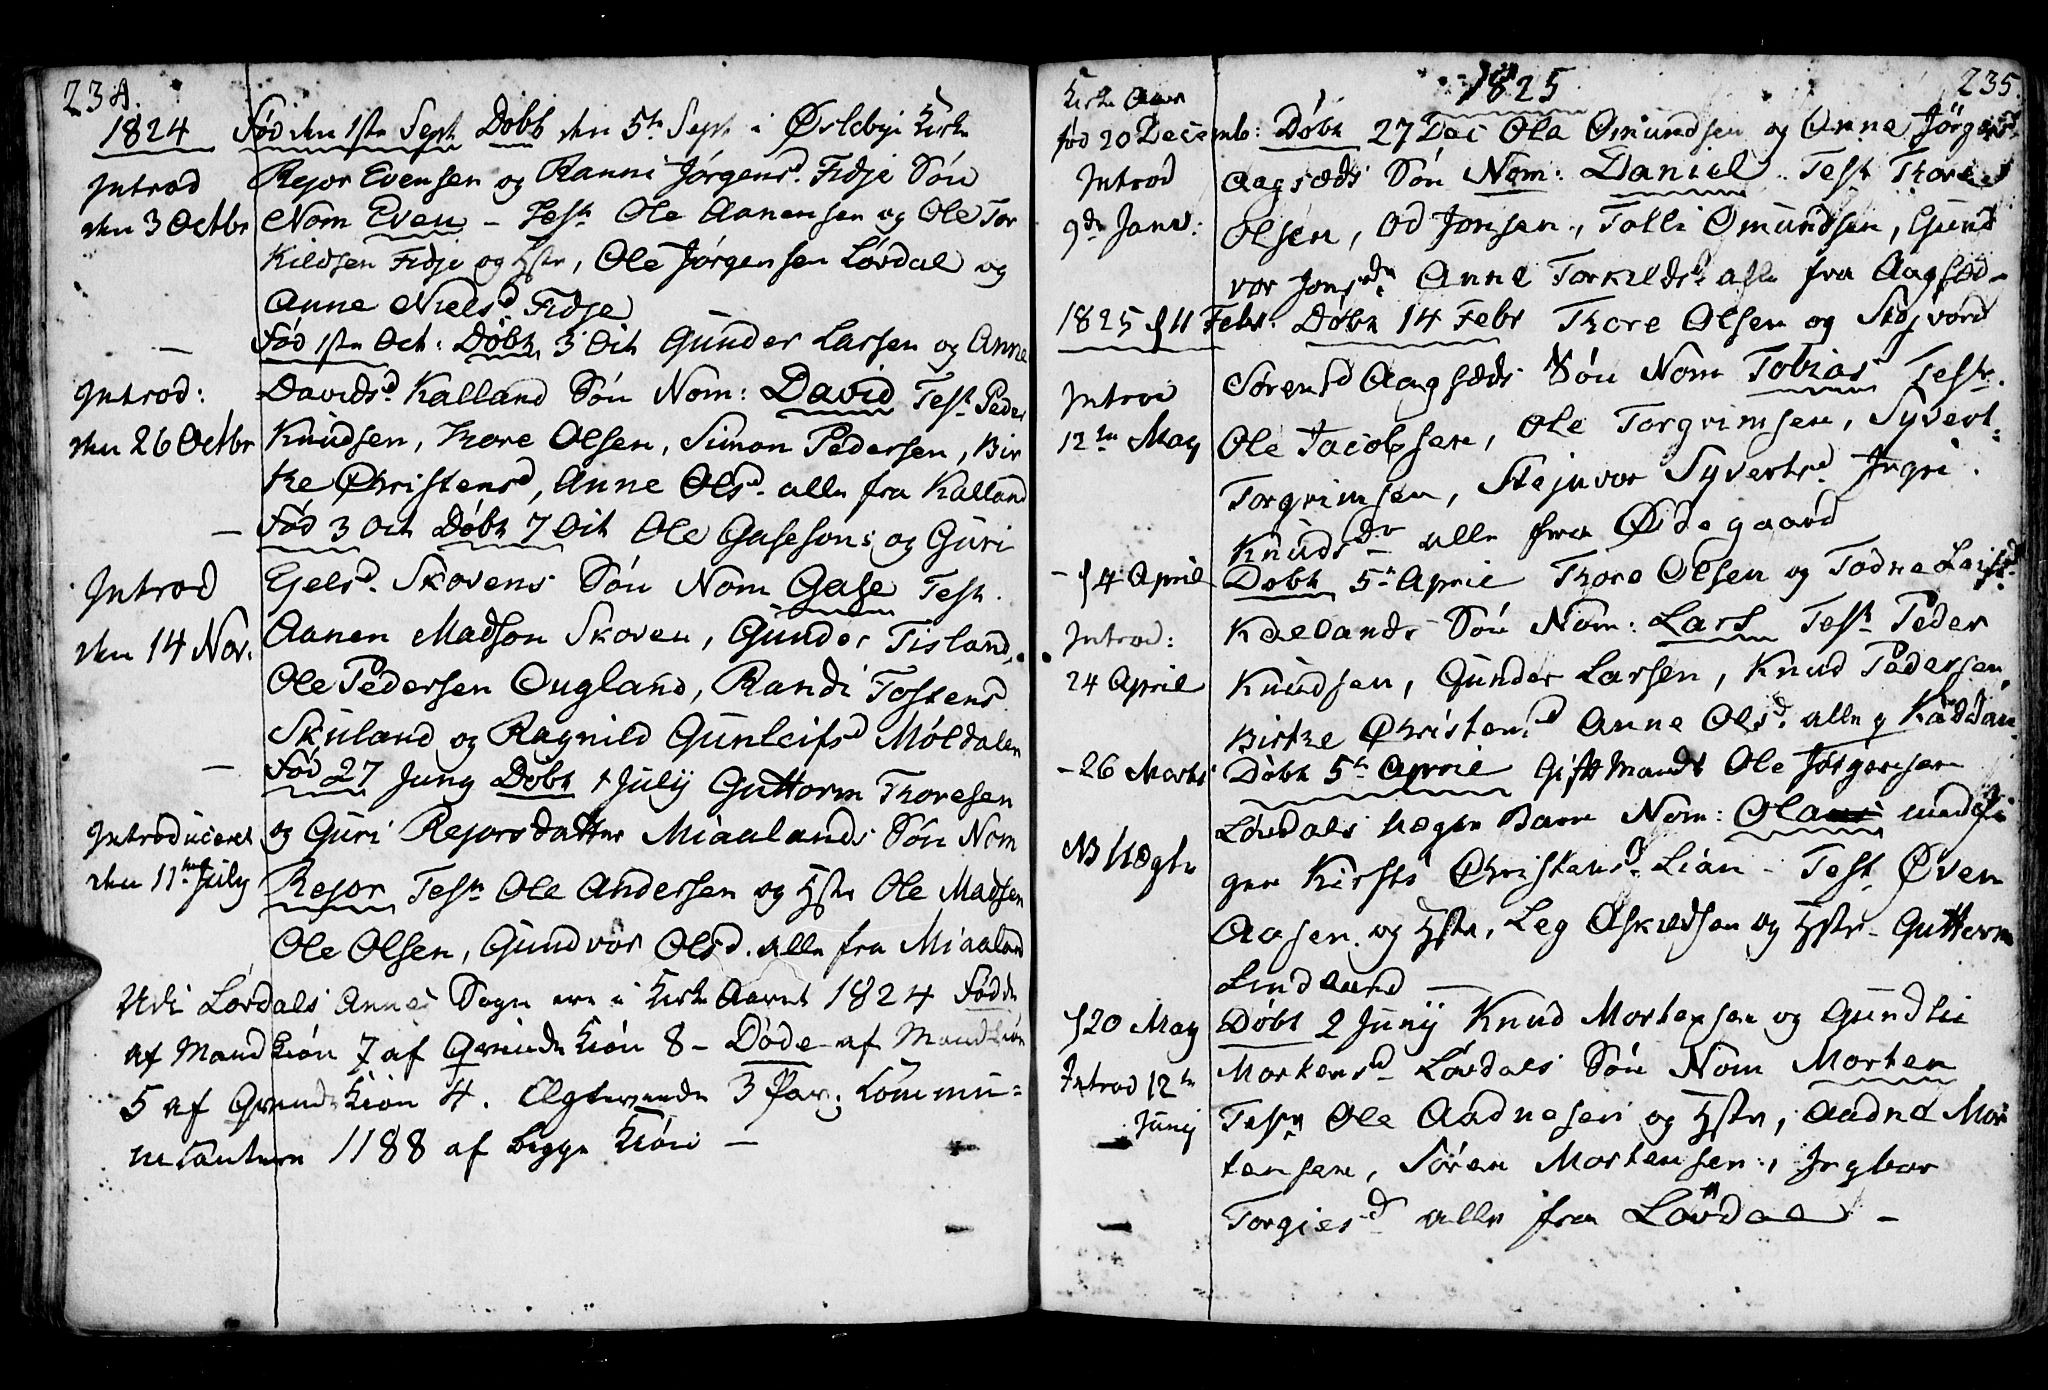 234.
1824 Fød den 1ste Sept Døbt den 5te Sept i Øslebye Kirke
Introd Rejor Evensen og Ranni Jørgensd. Fidje Søn
den 3 Octbr Nom Even – Test Ole Aanensen og Ole Tor
kildsen Fidje og Hstr, Ole Jørgensen Løvdal og
Anne Nielsd Fidje
Fød 1ste Oct: Døbt 3 Oct Gunder Larsen og Anne
Introd: Davidsd Kalland Søn Nom: David Test Peder
den 26 Octbr Knudsen, Thore Olsen, Simon Pedersen, Bir
ke Christensd, Anne Olsd. alle fra Kalland
– Fød 3 Oct Døbt 7 Oct Ole Gasesons og Guri
Introd Ejelsd. Skovens Søn Nom Gase Test.
den 14 Nov. Aanen Madson Skoven, Gunder Tisland,
Ole Pedersen Ougland, Randi Tostensd
Skuland og Ragnild Gunleifsd Møldalen
– Fød 27 Juny Døbt 1 July Guttorm Thoresen
Introduceret og Guri Rejorsdatter Miaalands Søn Nom
den 11te July Rejor Test Ole Andersen og Hstr Ole Madsen
Ole Olsen, Gundvor Olsd. alle fra Miaaland
Udi Løvdals Annex Sogn ere i Kirke Aaret 1824 Fødde
af Mandkiøn 7 af Qvindekiøn 8 – Døde af Mandkiøn
5 af Qvindekiøn 4. Ægteviede 3 Par; Commu=
nicantere 1188 af begge Kiøn –
1825 235.
Kirke Aar
fød 20 Decemb: Døbt 27 Dec Ola Omundsen og Anne Jørgensd
Introd Aagsæds Søn Nom: Daniel. Test Thore
9de Janv: Olsen, Od Jonsen, Tolli Omundsen, Gund
vor Jonsdr Anne Torkildsd alle fra Aagsæd –
1825 f 11 Febr: Døbt 14 Febr Thore Olsen og Skjvord
Introd Sørensd Aagsæds Søn Nom Tobias Test.
12te May Ole Jacobsen, Ole Torgrimsen, Syvert
Torgrimsen, Stejnvor Syvertsd. Ingri
Knudsdr alle fra Ødegaard
– f 4 April Døbt 5te April Thore Olsen og Todne Leifsd.
Introd: Kallands Søn Nom: Lars Test Peder
24 April Knudsen, Gunder Larsen, Knud Pedersen,
Birke Christensd Anne Olsd. alle f Kalland
– 26 Marts Døbt 5te April Gift Mands Ole Jørgensen
NB Uægte Løvdals uægte Barn Nom: Olaus med Pi
gen Kirsti Christensd. Lian – Test. Øven
Aasen og Hstr, Leg Askildsen og Hstr – Guttorm
Lindland –
f 20 May Døbt 2 Junij Knud Mortensen og Gundlei
Introd 12te Mortensd Løvdals Søn Nom Morten
Junij Test Ole Aadnesen og Hstr, Aadne Mor
tensen, Søren Mortensen, Ingbor
Torgiesd alle fra Løvdal –